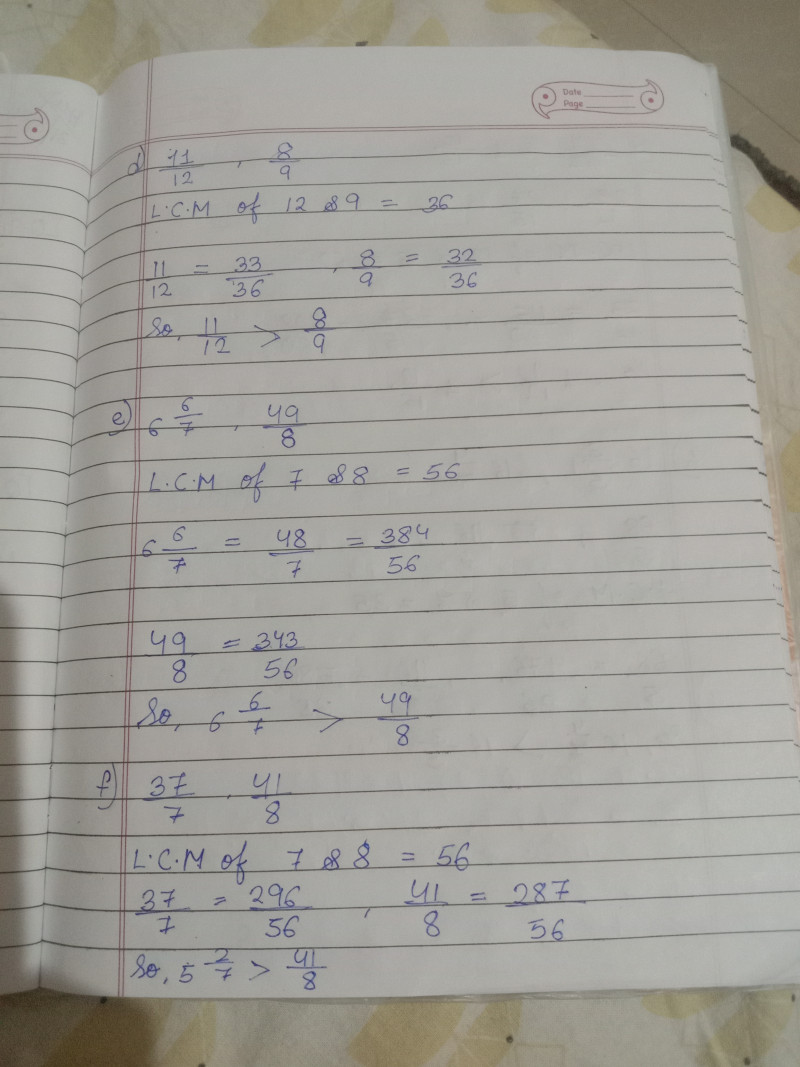 Date
Page
d) 11/12 , 8/9
L.C.M of 12 & 9 = 36
11/12 = 33/36 , 8/9 = 32/36
So, 11/12 > 8/9
e) 6 6/7 , 49/8
L.C.M of 7 & 8 = 56
6 6/7 = 48/7 = 384/56
49/8 = 343/56
So, 6 6/7 > 49/8
f) 37/7 , 41/8
L.C.M of 7 & 8 = 56
37/7 = 296/56 , 41/8 = 287/56
So, 5 2/7 > 41/8